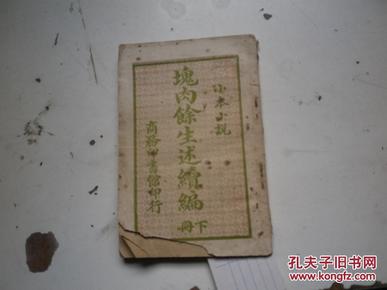 小本小説
塊肉餘生述續編
下冊
商務印書館印行
孔夫子旧书网